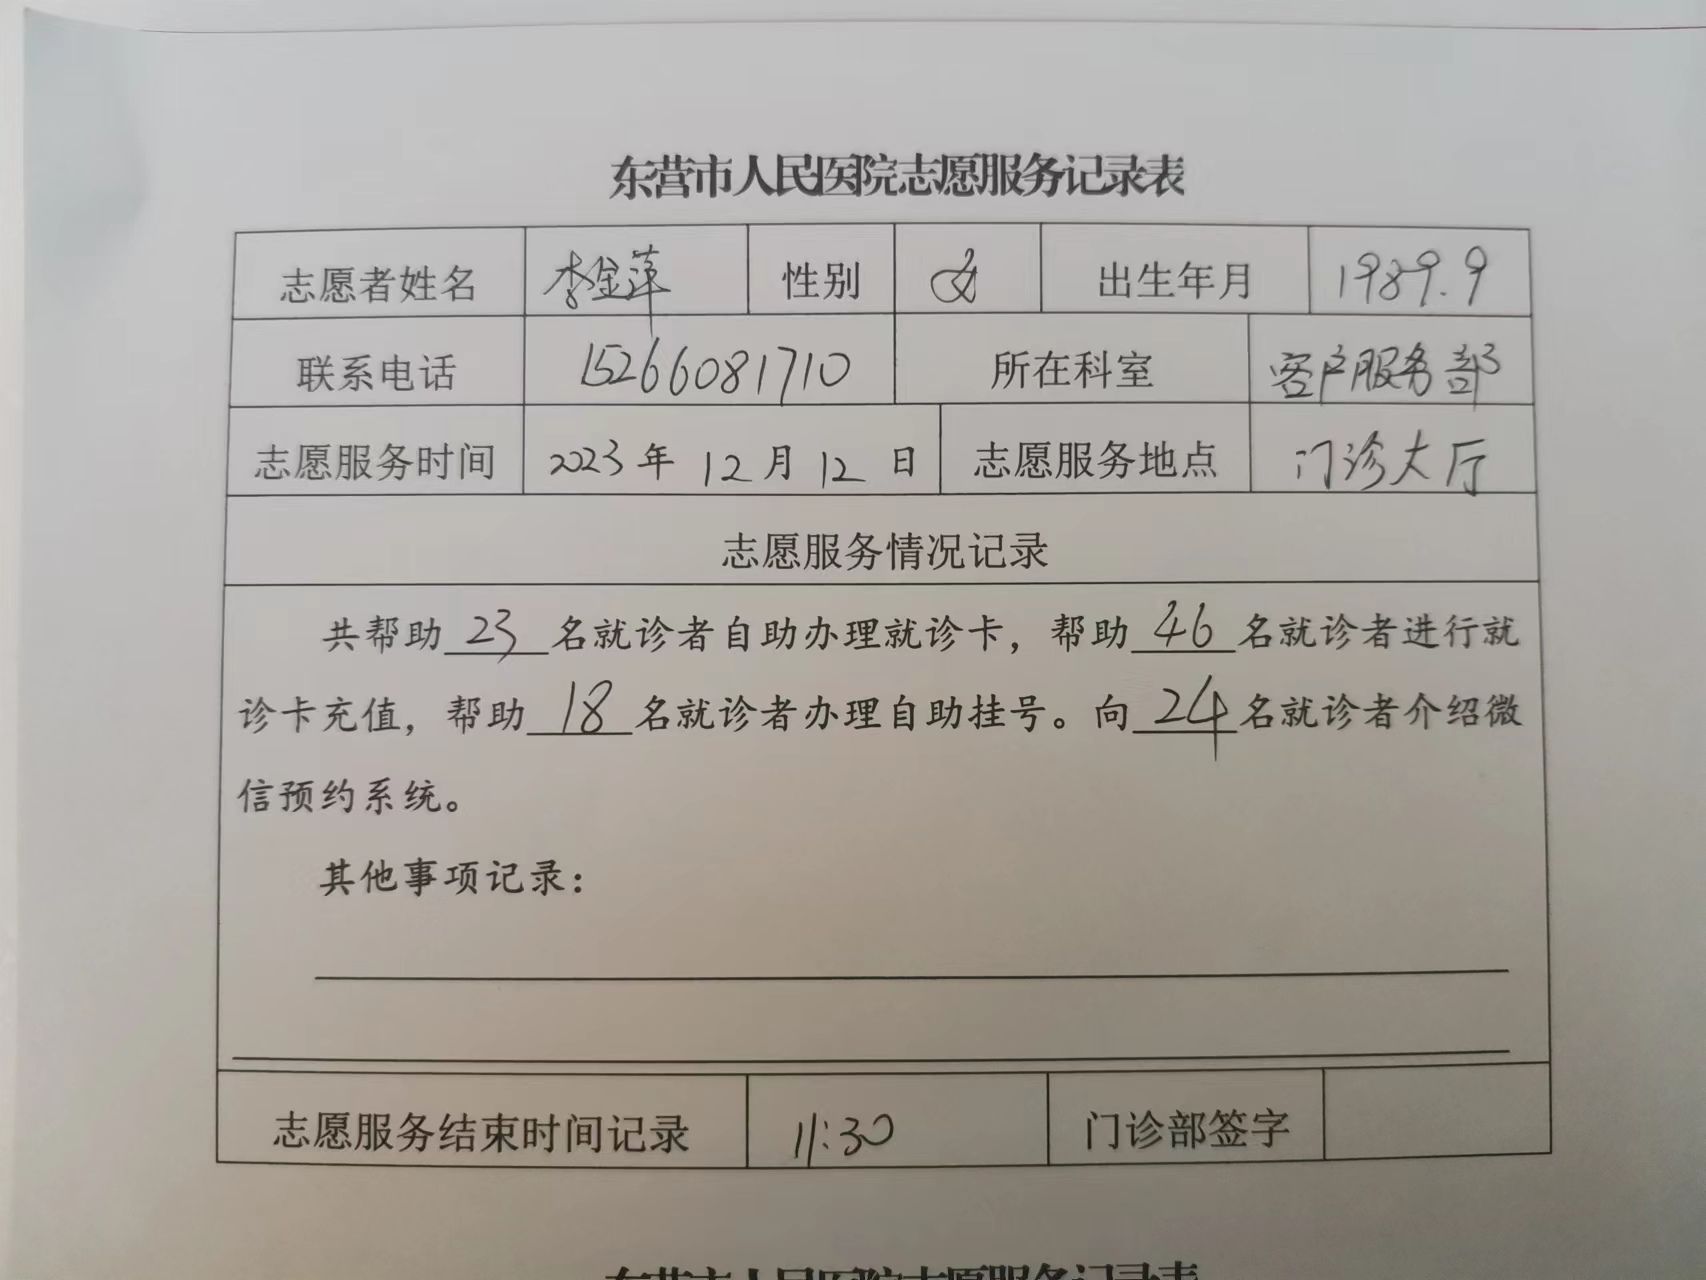 东营市人民医院志愿服务记录表
志愿者姓名 李金萍 性别 女 出生年月 1989.9
联系电话 15266081710 所在科室 客户服务部
志愿服务时间 2023年12月12日 志愿服务地点 门诊大厅
志愿服务情况记录
共帮助 23 名就诊者自助办理就诊卡，帮助 46 名就诊者进行就
诊卡充值，帮助 18 名就诊者办理自助挂号。向 24 名就诊者介绍微
信预约系统。
其他事项记录：
志愿服务结束时间记录 11:30 门诊部签字
东营市人民医院志愿服务记录表